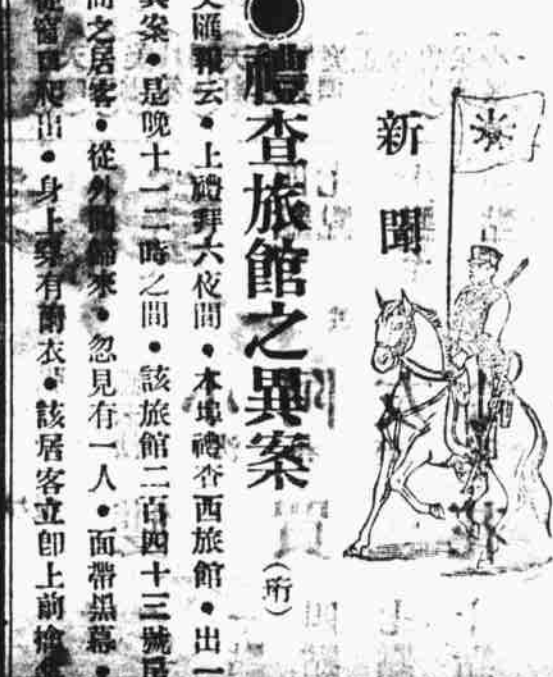 新聞
●禮查旅館之異案（珩）
文匯報云•上禮拜六夜間•本埠禮查西旅館•出一
異案•是晚十一二時之間•該旅館二百四十三號房
間之居客•從外間歸來•忽見有一人•面帶黑幕•
從窗口爬出•身上穿有雨衣•該居客立卽上前擒